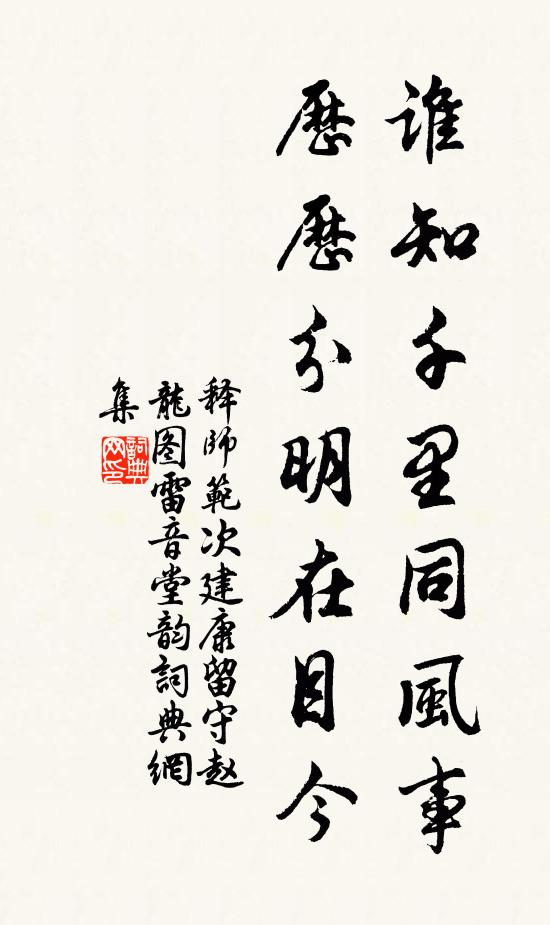 誰知千里同風事
歷歷分明在目今
释師範次建康留守赵
龍图雷音堂韵詞典網
集
詞典
网印